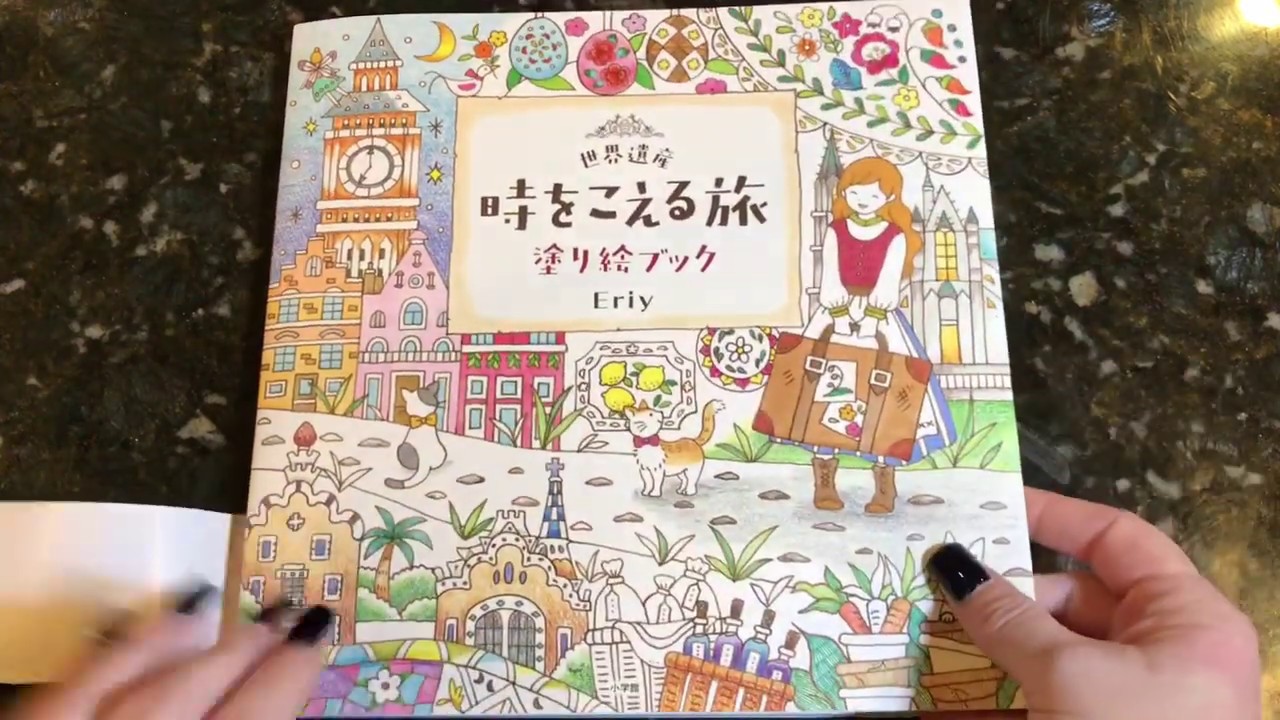 世界遺産
時をこえる旅
塗り絵ブック
Eriy
小学館